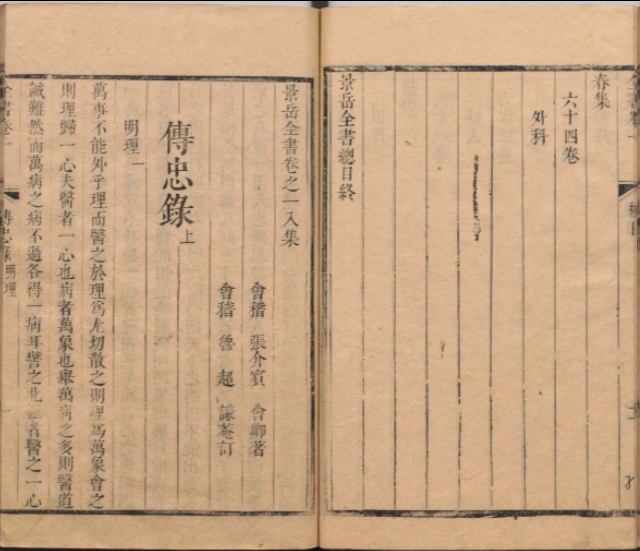 春集
六十四卷
外科
景岳全書總目終
景岳全書卷之一入集
會稽 張介賓 會卿著
會稽 魯 超 謙菴訂
傳忠錄上
明理一
萬事不能外乎理而醫之於理為尤切散之則理爲萬象會之
則理歸一心夫醫者一心也病者萬象也舉萬病之多則醫道
誠難然而萬病之病不過各得一病耳譬之北極者醫之一心
傳忠錄 明理 一